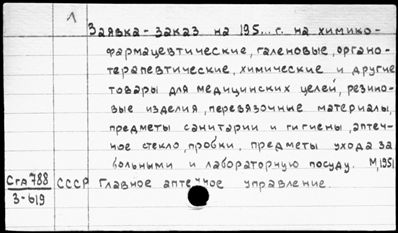 1
Заявка-заказ на 195... г. на химико-
фармацевтические, галеновые, органо-
терапевтические, химические и другие
товары для медицинских целей, резино-
вые изделия, перевязочные материалы,
предметы санитарии и гигиены, аптеч-
ное стекло, пробки, предметы ухода за
больными и лабораторную посуду. М, 1951
СГА 788
З-619
СССР Главное аптечное управление.